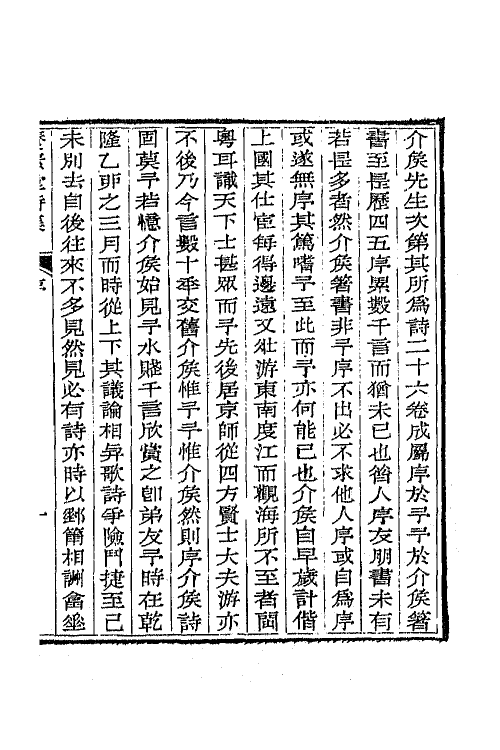 介矦先生次第其所爲詩二十六卷成屬序於予予於介矦著
書至是歷四五序累數千言而猶未已也昔人序友朋書未有
若是多者然介矦著書非予序不出必不求他人序或自爲序
或遂無序其篤嗜予至此而予亦何能已也介矦自早歲計偕
上國其仕宦每得邊遠又壯游東南度江而觀海所不至者閩
粤耳識天下士甚眾而予先後居京師從四方賢士大夫游亦
不後乃今言數十年交舊介矦惟予予惟介矦然則序介矦詩
固莫予若憶介矦始見予水賤千言欣賞之卽弟友予時在乾
隆乙卯之三月而時從上下其議論相與歌詩爭險鬥捷至已
未別去自後往來不多見然見必有詩亦時以郵筩相詶畣㡭
序
一